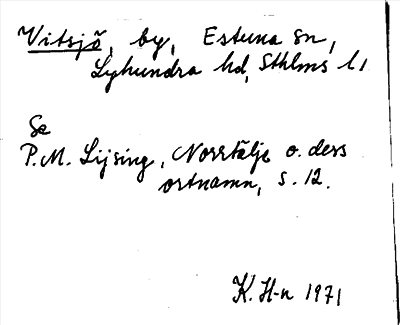 Vitsjö, by, Estuna sn,
Lyhundra hd, Sthlms l.
Se
P.M. Lijsing, Norrtälje o. dess
ortnamn, s. 12.
K. H-n 1971